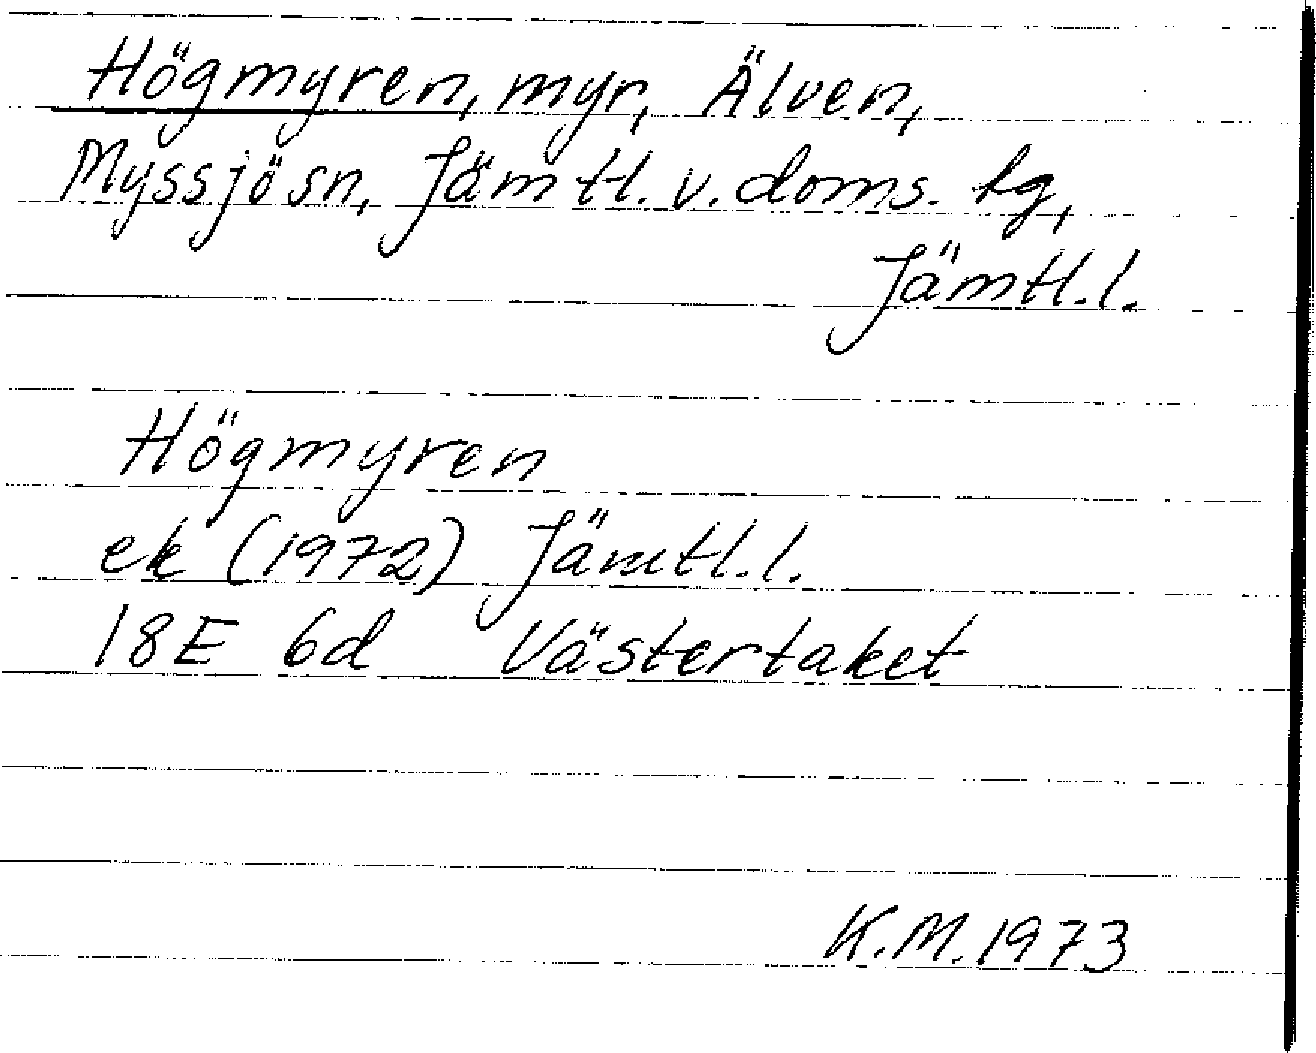 Högmyren, myr, Älven,
Myssjö sn, Jämtl. v. doms. tg,
Jämtl. l.
Högmyren
ek (1972) Jämtl. l.
18E 6d Västertaket
K.M. 1973